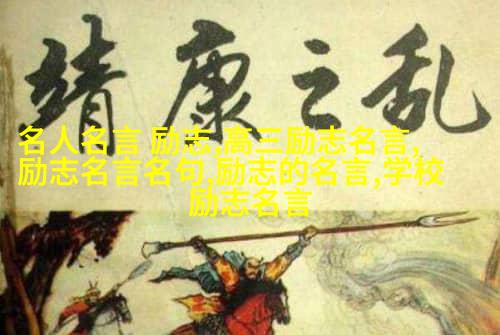 靖康之乱
名人名言 励志,高三励志名言,
励志名言名句,励志的名言,学校
励志名言